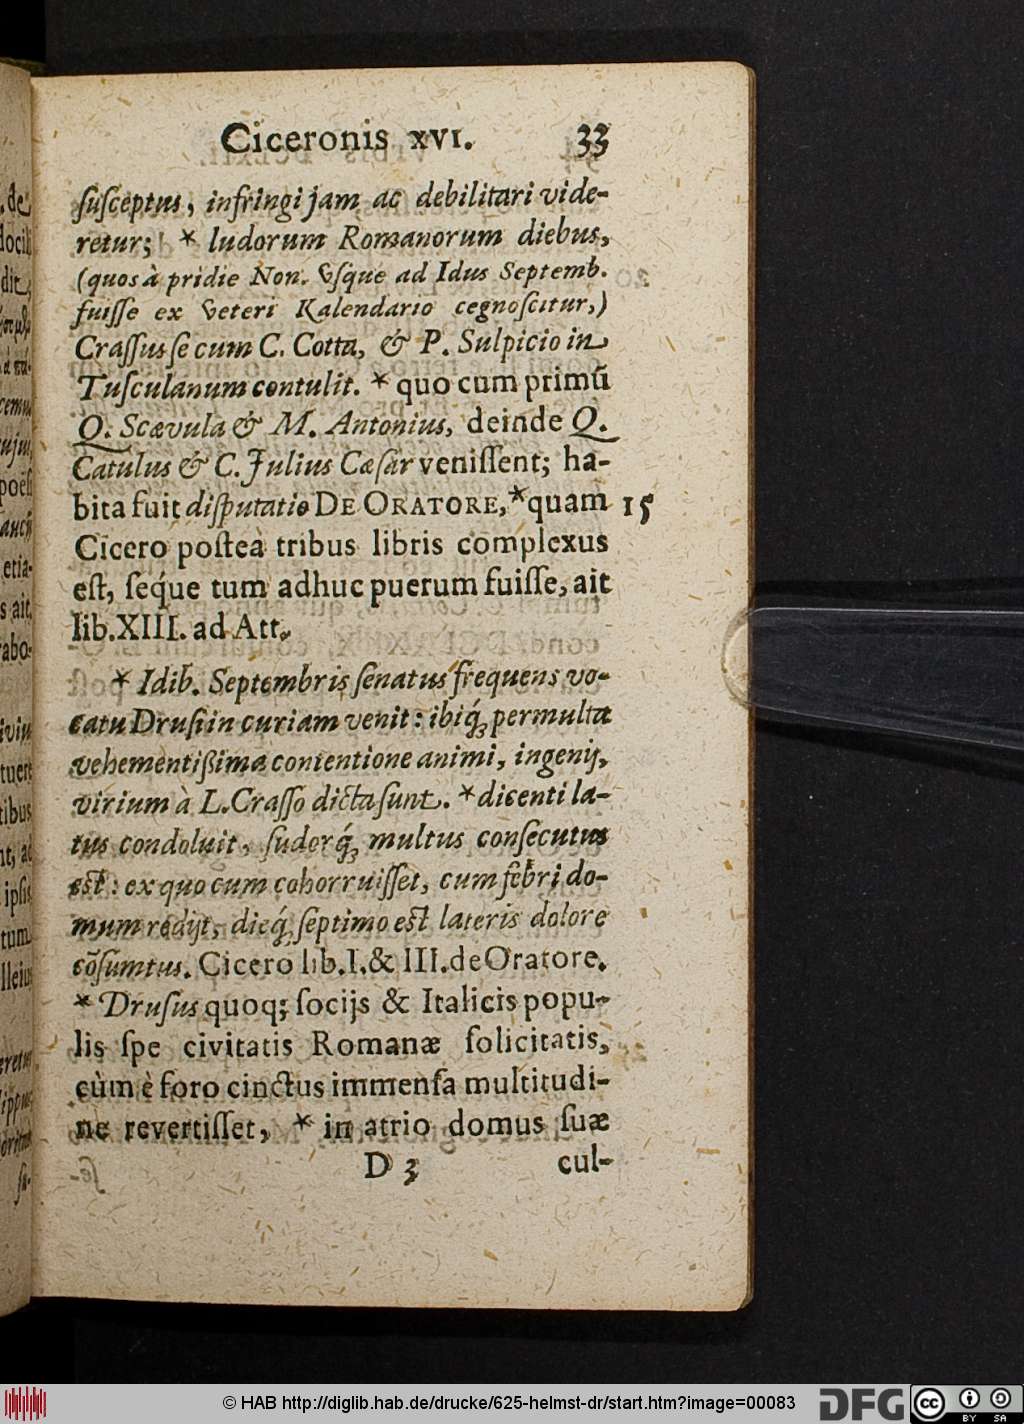 Ciceronis XVI. 33
ſuſceptus, infringi jam ac debilitari vide-
retur; * ludorum Romanorum diebus,
(quos à pridie Non. Vſque ad Idus Septemb.
fuiſſe ex Veteri Kalendario cegnoſcitur,)
Craſſus ſe cum C. Cotta, & P. Sulpicio in
Tuſculanum contulit. * quo cum primũ
Q. Scævula & M. Antonius, deinde Q.
Catulus & C. Julius Cæſar veniſſent; ha-
bita fuit diſputatio DE ORATORE, * quam 15
Cicero poſtea tribus libris complexus
eſt, ſeque tum adhuc puerum fuiſſe, ait
lib. XIII. ad Att.
* Idib. Septembris ſenatus frequens vo-
catu Druſi in curiam venit: ibiq́; permulta
vehementißima contentione animi, ingenij,
virium à L. Craſſo dicta ſunt. * dicenti la-
tus condoluit, ſudorq́; multus conſecutus
eſt: ex quo cum cohorruiſſet, cum febri do-
mum redijt, dieq́; ſeptimo eſt lateris dolore
cõſumtus. Cicero lib. I. & III. de Oratore.
* Druſus quoq; ſocijs & Italicis popu-
lis ſpe civitatis Romanæ ſolicitatis,
cùm è foro cinctus immenſa multitudi-
ne revertiſſet, * in atrio domus ſuæ
D 3 cul-
© HAB http://diglib.hab.de/drucke/625-helmst-dr/start.htm?image=00083
DFG
cc BY SA